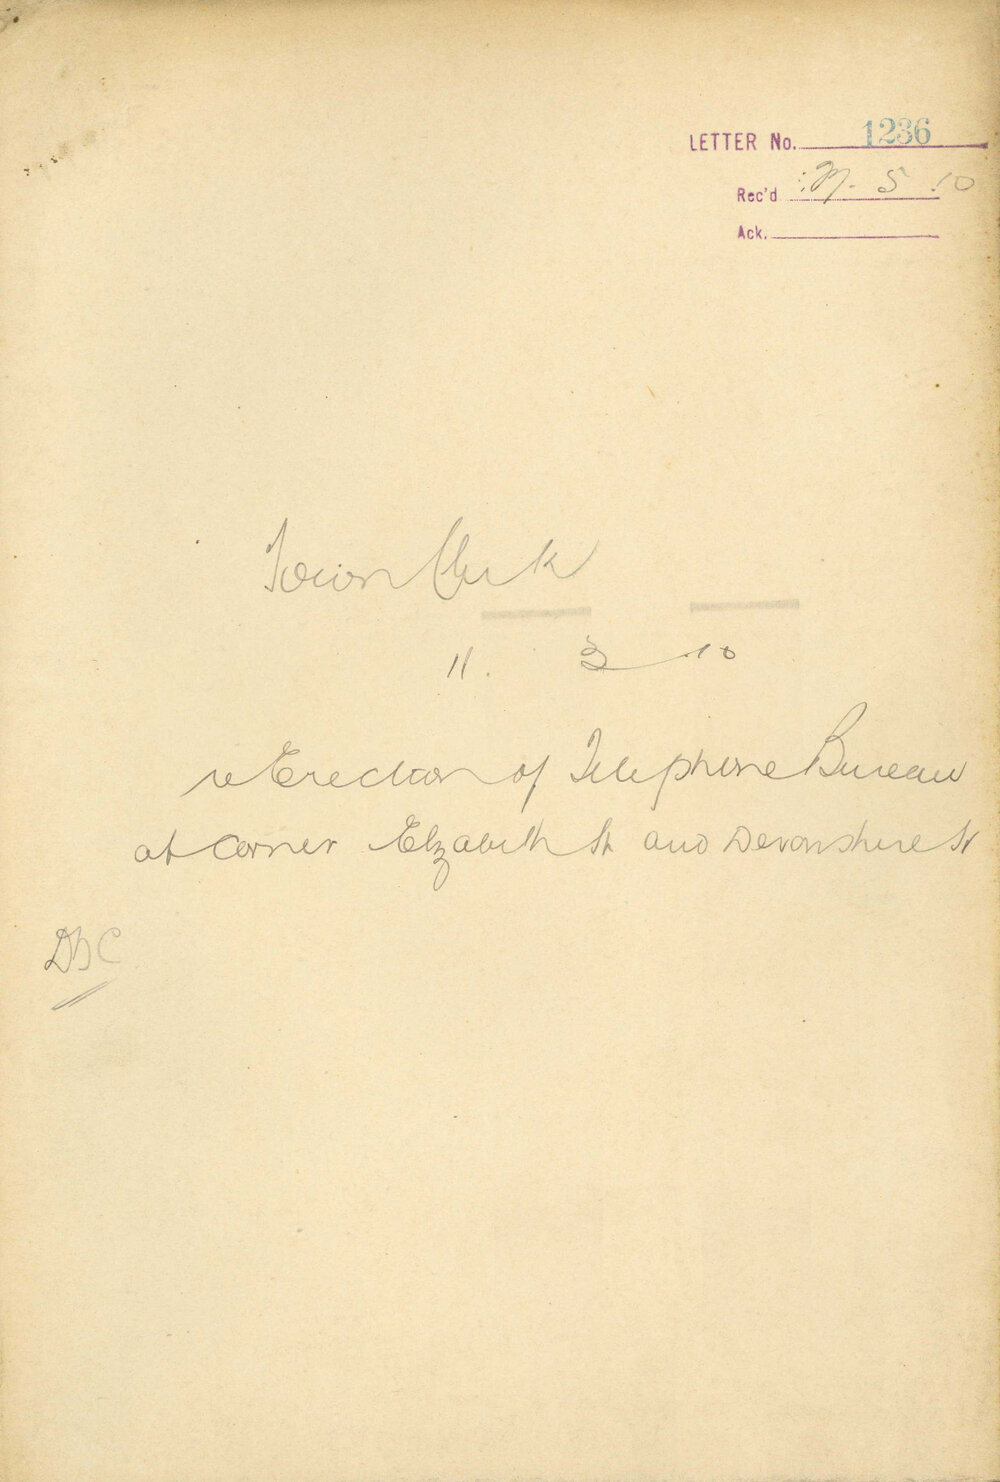 LETTER No. 1236
Rec'd 5 10
Ack.
Town Clerk
11. 3 .10
re Erection of Telephone Bureau
at Corner Elizabeth St and Devonshire St